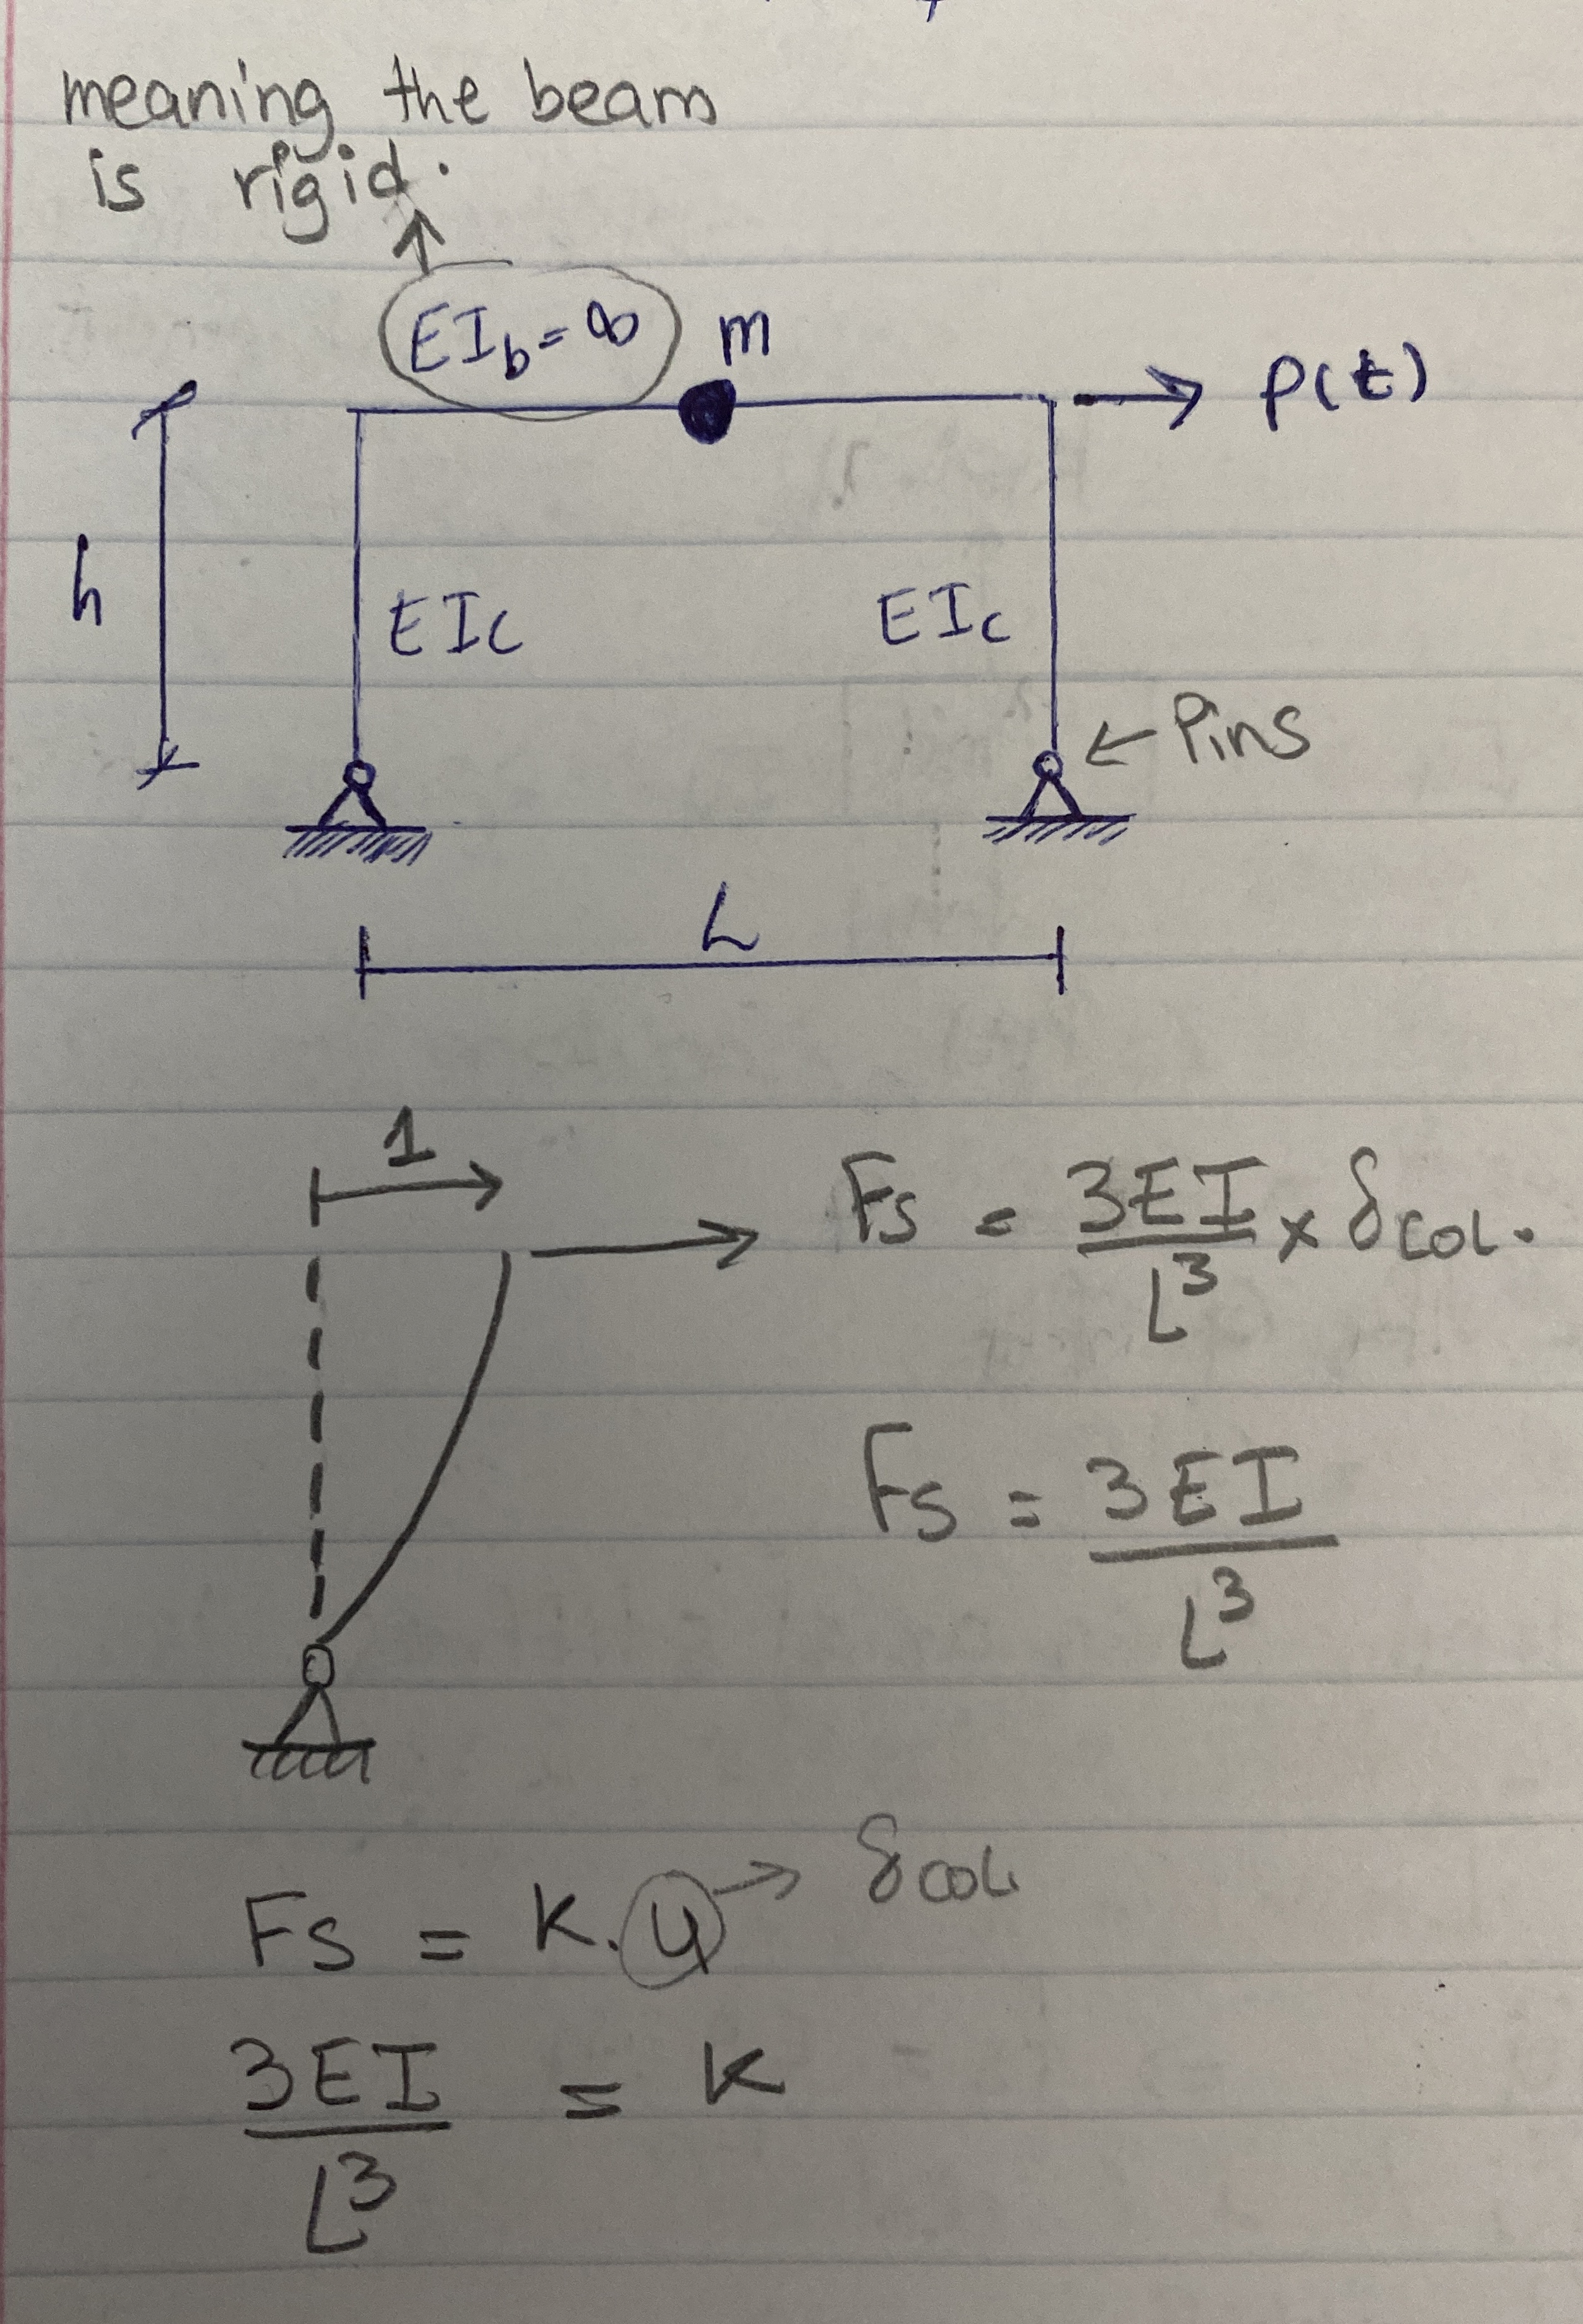 meaning the beam
is rigid.
EI_b = ∞
m
P(t)
h
EI_c
EI_c
← Pins
L
1
Fs = 3EI/L³ × δcol.
Fs = 3EI/L³
Fs = K.u → δcol
3EI/L³ = K